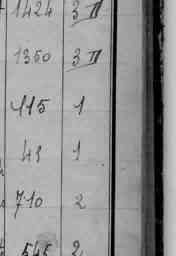 1424 3 II
1350 3 II
415 1
43 1
710 2
545 2